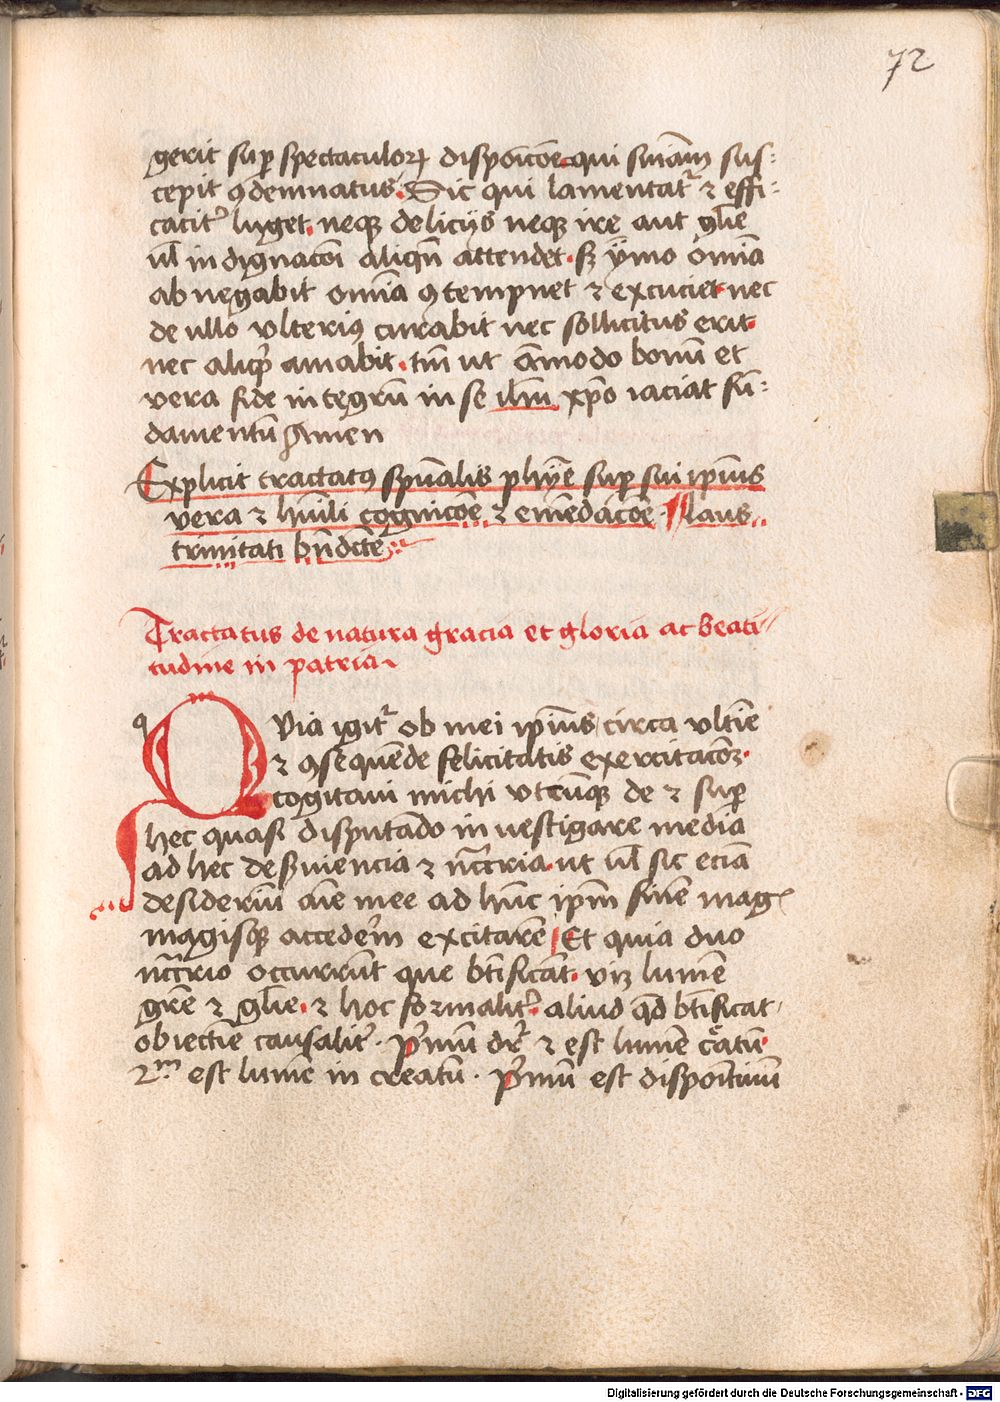 72
gerit sup spectaculoꝝ dispoīcōe qui sniām sus-
cepit ꝯdemnatus. Sic qui lamentatᷣ ⁊ effi-
cacitᷣ luget. neqꝫ delicijs neqꝫ ire aut gl̄ie
ul̄ indignacōi aliqn̄ attendet. sꝫ ÿmo om̄ia
abnegabit om̄ia ꝯtempnet ⁊ excuciet nec
de ullo ulteriꝯ curabit nec sollicitus erit.
nec aliqᷤ amabit. tm̄ ut āmodo bonū et
vera fide integrū in se ilh̄m xp̄o iaciat fū-
damentū Amen
Explicit tractatꝯ spūalis phÿe sup sui ip̄ius
vera ⁊ hūili cognicōe ⁊ emēdacōe. laus
trinitati bn̄dcte
Tractatus de natura gracia et gloria ac beati
tudine in patria
q
QVia igitᷣ ob mei ip̄ius circa ultīe
⁊ ꝯsequēde felicitatis exercitacōꝫ.
cogitaui michi utcūqꝫ de ⁊ sup
hec quasi disputādo inuestigare media
ad hec deßuiencia ⁊ nc̄cria. ut ul̄ sic eciā
desideriū aīe mee ad hūc ip̄m finē mag-
magisqꝫ accedēm excitarē Et quia duo
nc̄crio occurrūt que bt̄ificāt. viꝫ lumē
grē ⁊ gl̄ie. ⁊ hoc formalitᷣ. aliud qd̄ bt̄ificat
obiectiē causalitᷣ. pᷓmū drᷣ ⁊ est lumē cᷓatū.
2ᵐ est lumē increatū. pᷓmū est dispoītiuū
Digitalisierung gefördert durch die Deutsche Forschungsgemeinschaft - DFG